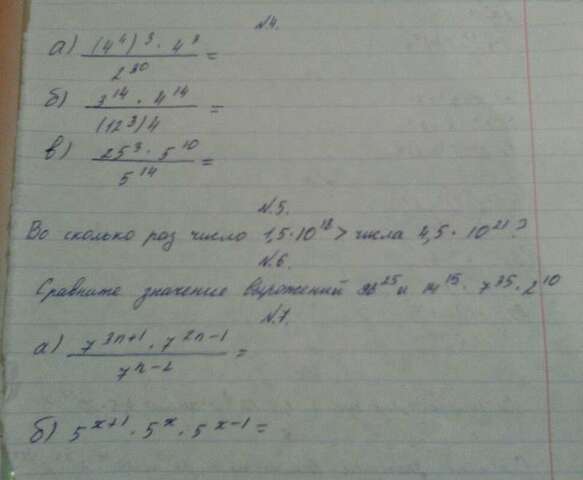 №4.
а) (4⁴)³ · 4³ / 2³⁰ =
б) 3¹⁴ · 4¹⁴ / (12³)4 =
в) 25³ · 5¹⁰ / 5¹⁴ =
№5.
Во сколько раз число 1,5·10¹⁸ > числа 4,5 · 10²¹?
№6.
Сравните значение выражений и 14¹⁵ · 7³⁵ · 2¹⁰
№7.
а) 7³ⁿ⁺¹ · 7²ⁿ⁻¹ / 7ⁿ⁻² =
б) 5ˣ⁺¹ · 5ˣ · 5ˣ⁻¹ =